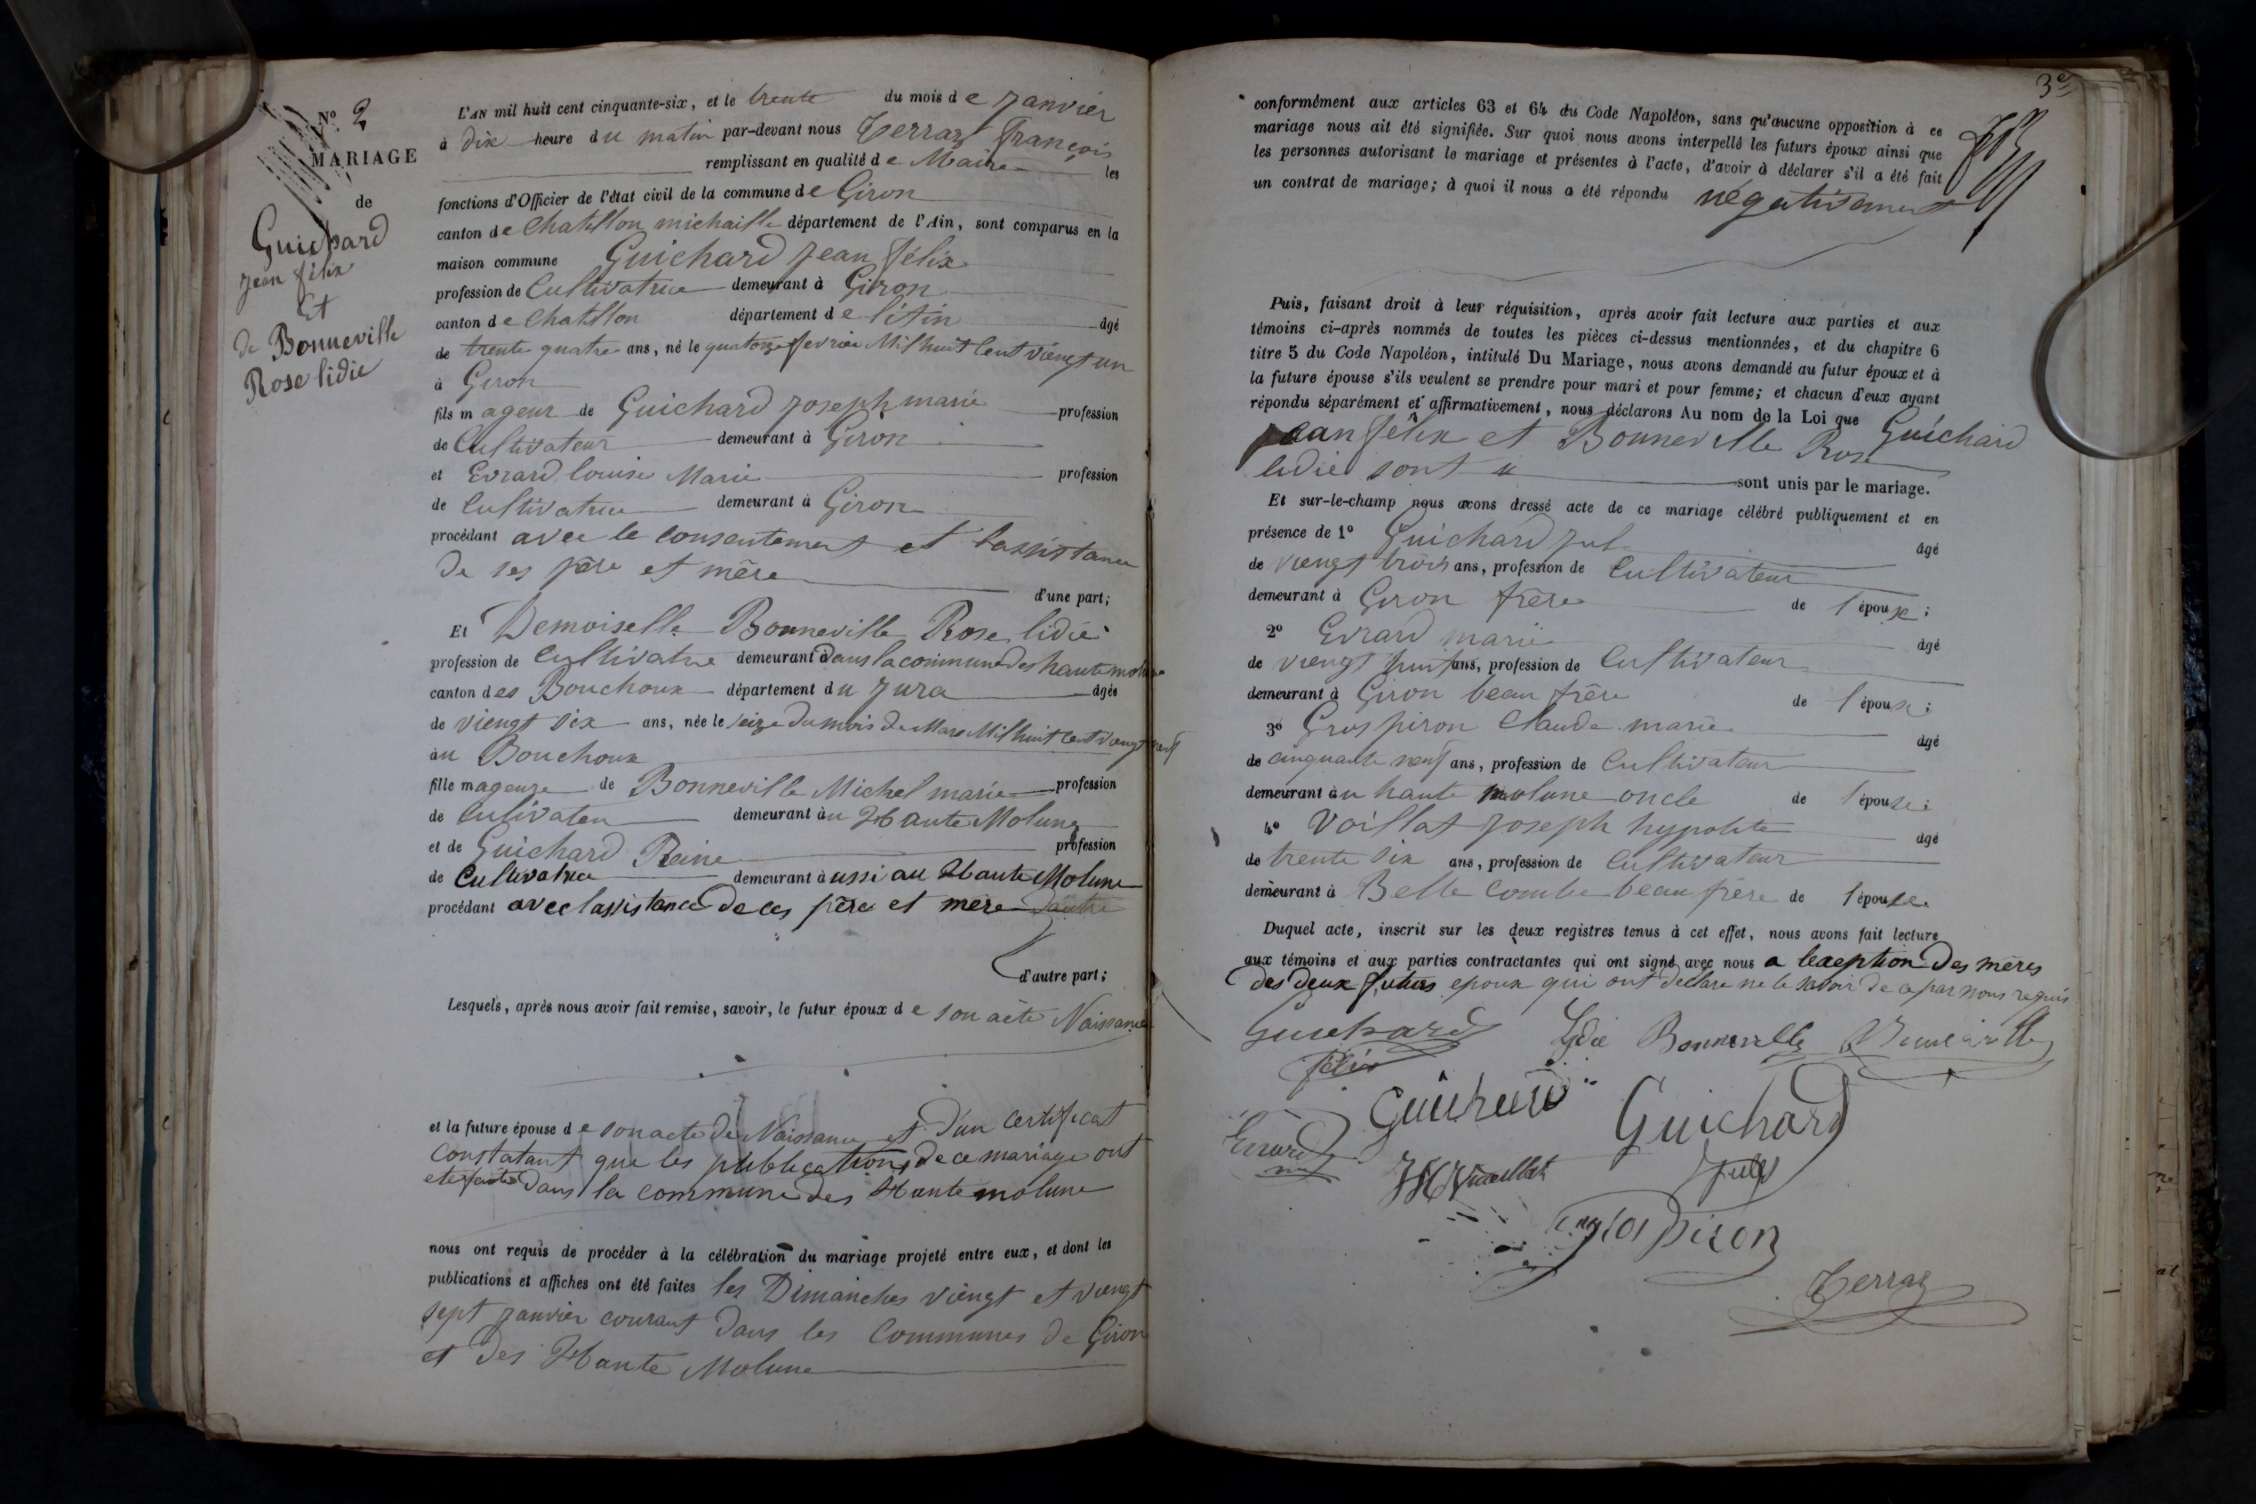 N° 2
MARIAGE
de
Guichard
jean félix
Et
de Bonneville
Rose lidie
L'AN mil huit cent cinquante-six, et le trente du mois de janvier
à dix heure du matin par-devant nous Terraz François
remplissant en qualité de Maire les
fonctions d'Officier de l'état civil de la commune de Giron
canton de Chatillon michaille département de l'Ain, sont comparus en la
maison commune Guichard jean félix
profession de Cultivatrice demeurant à Giron
canton de Chatillon département de l'Ain âgé
de trente quatre ans, né le quatorze fevrier Mil huit Cent viengt un
à Giron
fils mageur de Guichard joseph marie profession
de Cultivateur demeurant à Giron
et Evrard louise Marie profession
de Cultivatrice demeurant à Giron
procédant avec le consentement et l'assistance
de ses père et mère
d'une part;
Et Demoiselle Bonneville Rose lidie
profession de Cultivatrice demeurant à dans la commune des haute molune
canton des Bouchoux département du jura âgée
de viengt six ans, née le seize du mois de Mars Mil huit cent viengt neuf
au Bouchoux
fille mageure de Bonneville Michel marie profession
de Cultivateur demeurant au Haute Molune
et de Guichard Reine profession
de Cultivatrice demeurant aussi au Haute Molune
procédant avec l'assistance de ces père et mère d'autre
d'autre part;
Lesquels, après nous avoir fait remise, savoir, le futur époux de son acte Naissance
et la future épouse de son acte de Naissance et d'un certificat
constatant que les publications de ce mariage ont
ete faites dans la commune des Haute molune
nous ont requis de procéder à la célébration du mariage projeté entre eux, et dont les
publications et affiches ont été faites les Dimanches viengt et viengt
sept janvier courant dans les Communes de Giron
et des Haute Molune
3e
conformément aux articles 63 et 64 du Code Napoléon, sans qu'aucune opposition à ce
mariage nous ait été signifiée. Sur quoi nous avons interpellé les futurs époux ainsi que
les personnes autorisant le mariage et présentes à l'acte, d'avoir à déclarer s'il a été fait
un contrat de mariage; à quoi il nous a été répondu négativement
Puis, faisant droit à leur réquisition, après avoir fait lecture aux parties et aux
témoins ci-après nommés de toutes les pièces ci-dessus mentionnées, et du chapitre 6
titre 5 du Code Napoléon, intitulé Du Mariage, nous avons demandé au futur époux et à
la future épouse s'ils veulent se prendre pour mari et pour femme; et chacun d'eux ayant
répondu séparément et affirmativement, nous déclarons Au nom de la Loi que Guichard
jean félix et Bonneville Rose
lidie sont sont unis par le mariage.
Et sur-le-champ nous avons dressé acte de ce mariage célébré publiquement et en
présence de 1° Guichard jul âgé
de viengt trois ans, profession de Cultivateur
demeurant à Giron frère de l'épouse;
2° Evrard marie âgé
de viengt huit ans, profession de Cultivateur
demeurant à Giron beau frère de l'épouse;
3° Grospiron Claude marie âgé
de cinquante neuf ans, profession de Cultivateur
demeurant au haute molune oncle de l'épouse;
4° Voillat joseph hypolite âgé
de trente six ans, profession de Cultivateur
demeurant à Belle Combe beau frère de l'épouse.
Duquel acte, inscrit sur les deux registres tenus à cet effet, nous avons fait lecture
aux témoins et aux parties contractantes qui ont signé avec nous a l'exeption des mères
des deux futurs epoux qui ont declare ne le savoir de ce par nous requis
Guichard
félix
Lidie Bonneville
Guichard
Guichard
Jules
Evrard
Grospiron
Terraz